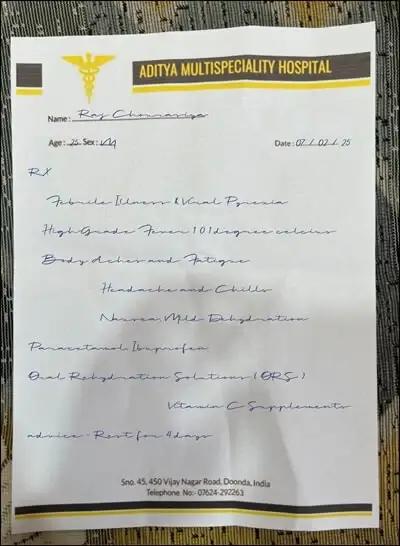 ADITYA MULTISPECIALITY HOSPITAL
Name: Raj Chourasiya
Age: 25 Sex: M
Date: 07/02/25
RX
Febrile Illness & Viral Pyrexia
High Grade Fever 101degree celcius
Body Aches and Fatigue
Headache and Chills
Nausea, Mild Dehydration
Paracetamol Ibuprofen
Oral Rehydration Solutions (ORS)
Vitamin C Supplements
advice - Rest for 4 days
Sno. 45, 450 Vijay Nagar Road, Doonda, India
Telephone No:- 07624-292263